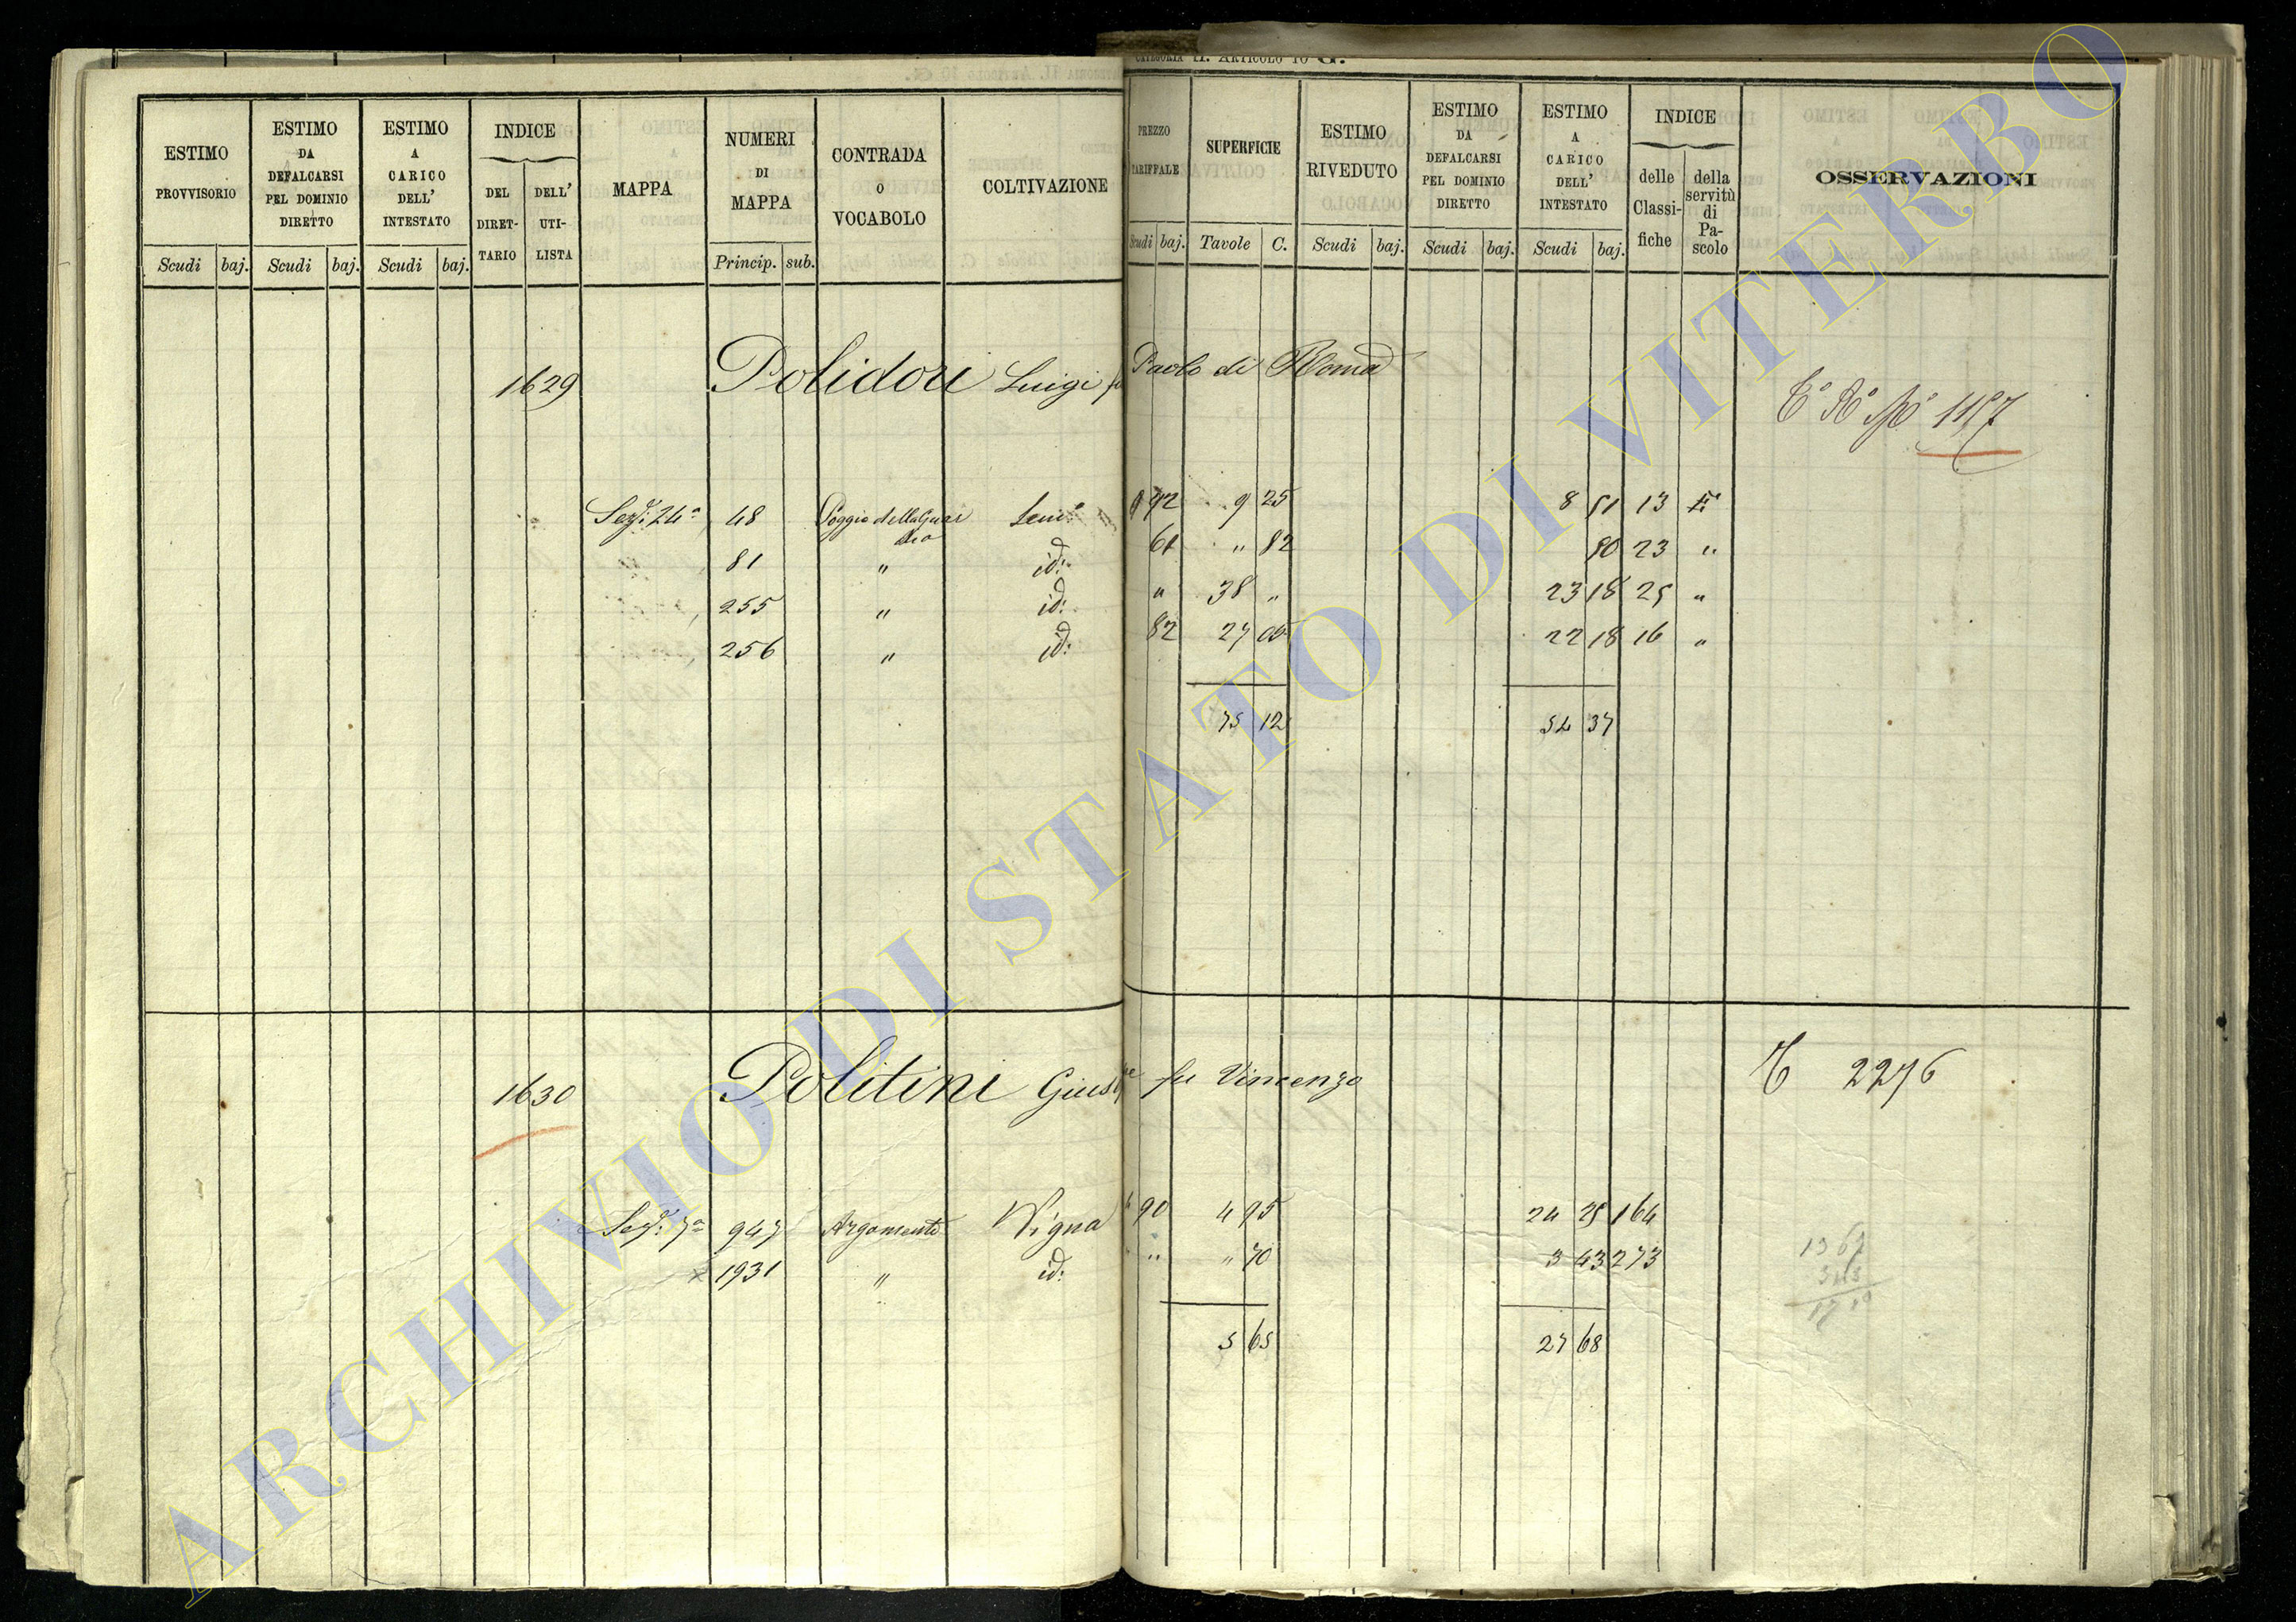 CATEGORIA II. ARTICOLO 10 G.
ESTIMO PROVVISORIO Scudi baj.
ESTIMO DA DEFALCARSI PEL DOMINIO DIRETTO Scudi baj.
ESTIMO A CARICO DELL' INTESTATO Scudi baj.
INDICE DEL DIRETTARIO DELL' UTILISTA
MAPPA
NUMERI DI MAPPA Princip. sub.
CONTRADA O VOCABOLO
COLTIVAZIONE
PREZZO TARIFFALE Scudi baj.
SUPERFICIE Tavole C.
ESTIMO RIVEDUTO Scudi baj.
ESTIMO DA DEFALCARSI PEL DOMINIO DIRETTO Scudi baj.
ESTIMO A CARICO DELL' INTESTATO Scudi baj.
INDICE delle Classifiche della servitù di Pascolo
OSSERVAZIONI
1629 Polidori Luigi fu Paolo di Roma
1187
Sez: 24ª 48 Poggio della Guardia Sem° 92 9 25 8 51 13
81 " id: 61 " 82 50 23 "
255 " id: " 38 " 23 18 25 "
256 " id: 82 27 05 22 18 16 "
75 12 54 37
1630 Politini Gius.pe fu Vincenzo
2276
Sez: 7ª 947 Argomento Vigna 4 90 4 95 24 25 164
× 1931 " id: " " " 70 3 43 273
5 65 27 68
1367
343
1710
ARCHIVIO DI STATO DI VITERBO